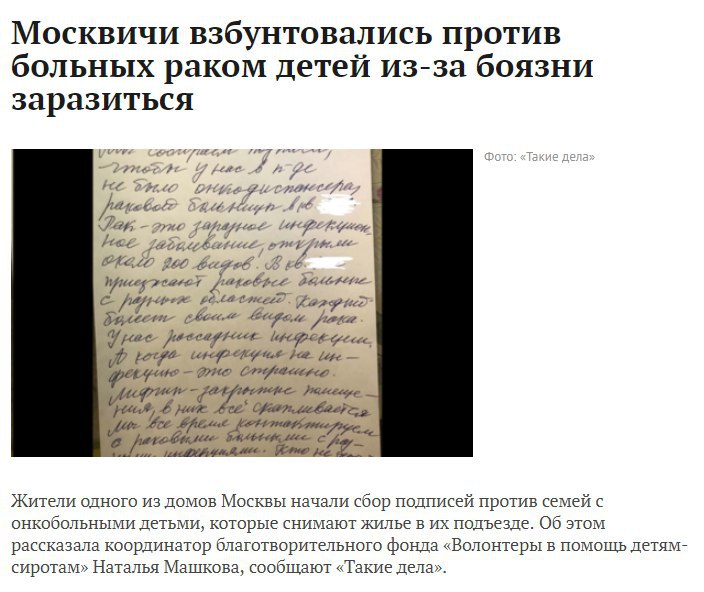 Москвичи взбунтовались против
больных раком детей из-за боязни
заразиться
Фото: «Такие дела»
собираем подписи,
чтобы у нас в п-де
не было онкодиспансера,
раковой больницы в кв
Рак - это заразное инфекцион-
ное заболевание, открыли
около 200 видов. В кв
приезжают раковые больные
с разных областей. Каждый
болеет своим видом рака.
У нас рассадник инфекции.
А когда инфекция на ин-
фекцию - это страшно.
Лифты - закрытые помеще-
ния, в них всё скапливается
Мы все время контактируем
с раковыми больными с раз-
ными инфекциями. Кто не
Жители одного из домов Москвы начали сбор подписей против семей с
онкобольными детьми, которые снимают жилье в их подъезде. Об этом
рассказала координатор благотворительного фонда «Волонтеры в помощь детям-
сиротам» Наталья Машкова, сообщают «Такие дела».